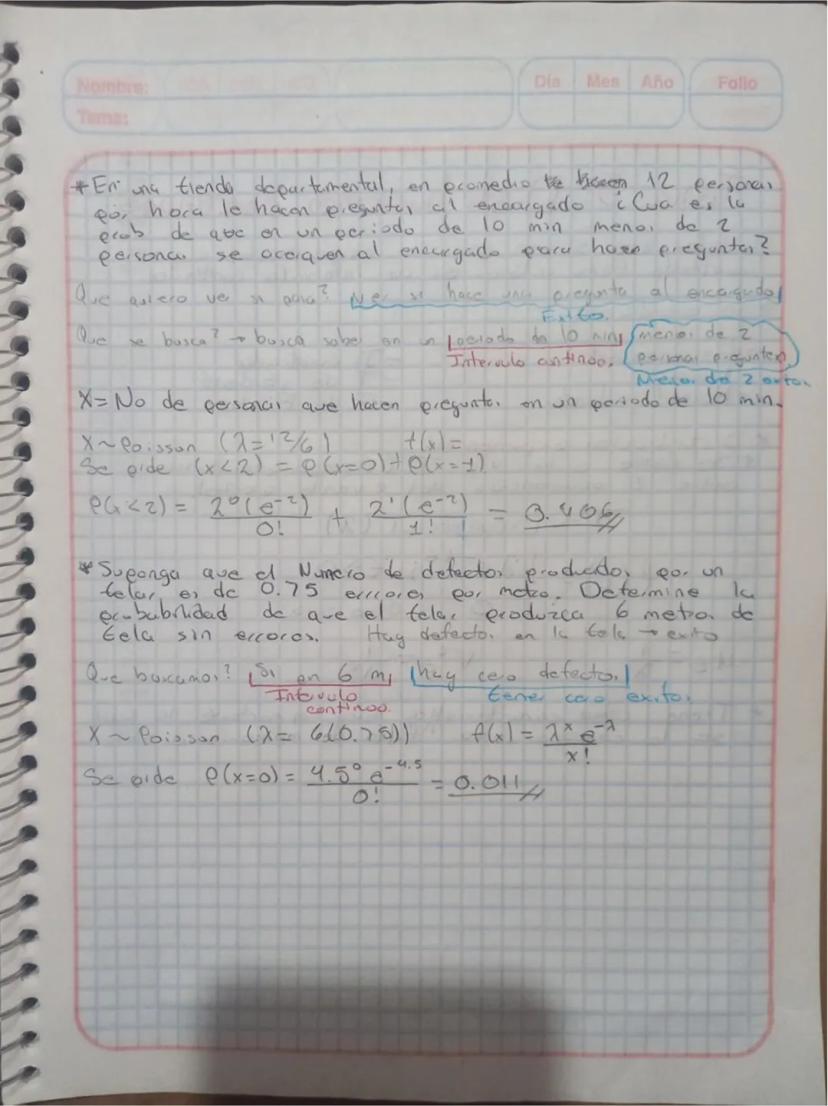 Nombre:
Día Mes Año Folio
Tema:
* En una tienda departamental, en promedio 12 personas
por hora le hacen preguntas al encargado ¿Cua es la
prob de que en un periodo de 10 min menos de 2
personas se acerquen al encargado para hacer preguntas?
Que quiero ver si pasa? Ver si hace una pregunta al encargado
Exito.
Que se busca? → busca saber en un periodo de 10 min, menos de 2
Intervulo continoo. personas pregunten
Menos de 2 exitos.
X = No de personas que hacen preguntas en un periodo de 10 min.
X ~ Poisson (λ = 12/6) f(x) =
Se pide (x < 2) = P(x=0) + P(x=1)
P(x < 2) = 2⁰(e⁻²)/0! + 2¹(e⁻²)/1! = 0.406
* Suponga que el Numero de defectos producidos por un
telar, es de 0.75 errores por metro. Determine la
probabilidad de que el telar produzca 6 metros de
tela sin errores. Hay defectos en la tela → exito
Que buscamos? Si en 6 m, hay cero defectos
Intervulo tener cero exitos.
continoo.
X ~ Poisson (λ = 6(0.75)) f(x) = λˣ e^-λ/x!
Se pide P(x=0) = 4.5⁰ e^-4.5/0! = 0.011